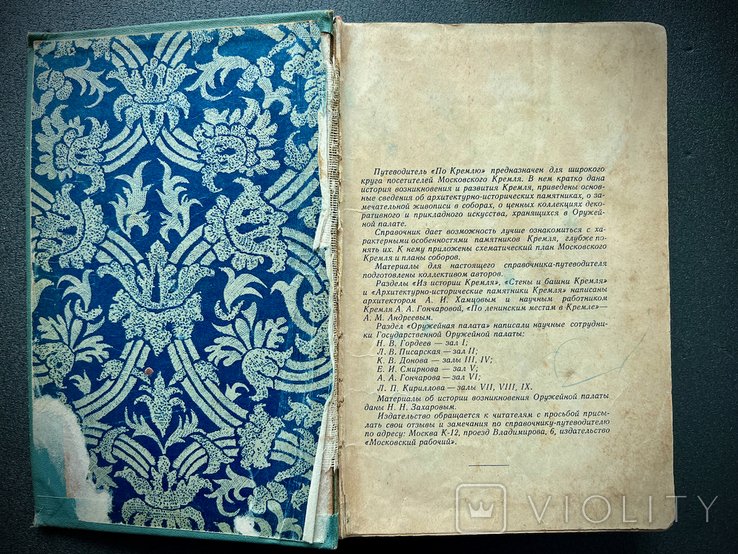 Путеводитель «По Кремлю» предназначен для широкого
круга посетителей Московского Кремля. В нем кратко дана
история возникновения и развития Кремля, приведены основ-
ные сведения об архитектурно-исторических памятниках, о за-
мечательной живописи в соборах, о ценных коллекциях деко-
ративного и прикладного искусства, хранящихся в Оружей-
ной палате.
Справочник дает возможность лучше ознакомиться с ха-
рактерными особенностями памятников Кремля, глубже по-
нять их. К нему приложены схематический план Московского
Кремля и планы соборов.
Материалы для настоящего справочника-путеводителя
подготовлены коллективом авторов.
Разделы «Из истории Кремля», «Стены и башни Кремля»
и «Архитектурно-исторические памятники Кремля» написаны
архитектором А. И. Хамцовым и научным работником
Кремля А. А. Гончаровой, «По ленинским местам в Кремле»—
А. М. Андреевым.
Раздел «Оружейная палата» написали научные сотрудни-
ки Государственной Оружейной палаты:
Н. В. Гордеев — зал I;
Л. В. Писарская — зал II;
К. В. Донова — залы III, IV;
Е. И. Смирнова — зал V;
А. А. Гончарова — зал VI;
Л. П. Кириллова — залы VII, VIII, IX.
Материалы об истории возникновения Оружейной палаты
даны Н. Н. Захаровым.
Издательство обращается к читателям с просьбой присы-
лать свои отзывы и замечания по справочнику-путеводителю
по адресу: Москва К-12, проезд Владимирова, 6, издательство
«Московский рабочий».
VIOLITY